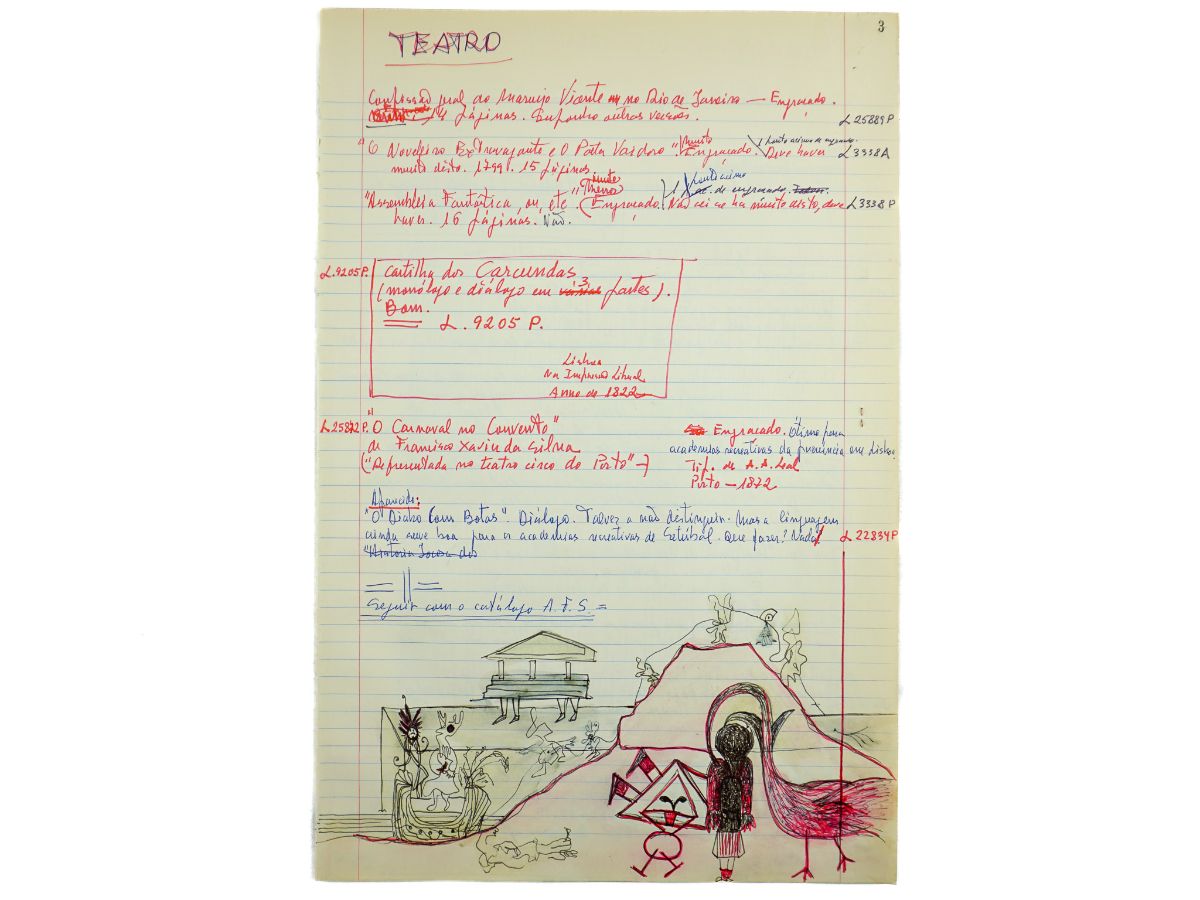 3
TEATRO
Confissão geral do Marujo Vicente no Rio de Janeiro — Engraçado.
14 páginas. Suponho outras versões.
L 25889 P
"O Noveleiro Extravagante e O Poeta Vaidoso" Muito Engraçado. Deve haver
L 3338 A
muito disto. 1799. 15 páginas
"Assembleia Fantástica, ou, etc." Engraçado. Não sei se há muito disto, deve
L 3338 P
haver. 16 páginas. Não.
L. 9205 P.
Cartilha dos Carcundas
(monólogo e diálogo em várias 3 partes).
Bom.
L. 9205 P.
Lisboa
Na Impressão Liberal
Anno de 1822
L 25872 P.
"O Carnaval no Convento"
Engraçado. Ótimo para
de Francisco Xavier da Silva
academias recreativas da província ou Lisboa
("Representada no teatro circo do Porto" —)
Tip. de A. A. Leal
Porto — 1872
"O Diabo Com Botas". Diálogo. Talvez a não distinguir. Mas a linguagem
ainda serve boa para as academias recreativas de Setúbal. Que fazer? Nada!
L 22834 P
Seguir com o catálogo A. F. S. =